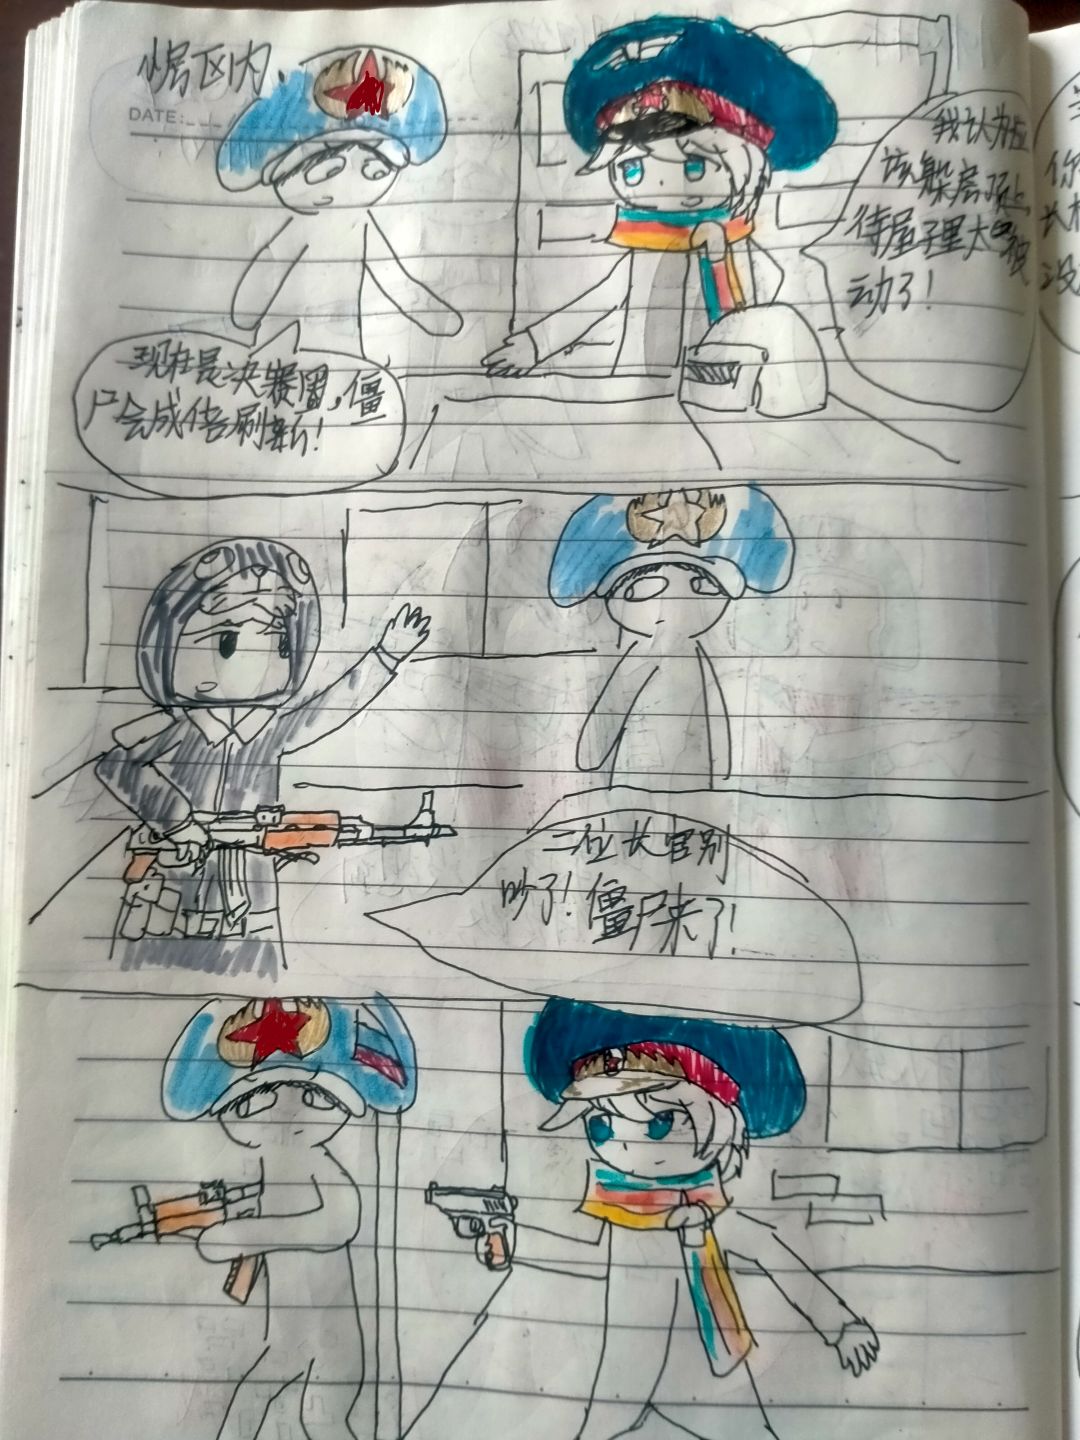 房区内,
DATE:
我认为应
该躲房顶上
待屋子里太被
动了!
现在是决赛圈,僵
尸会成倍刷新!
你
长
没
二位长官别
吵了!僵尸来了!